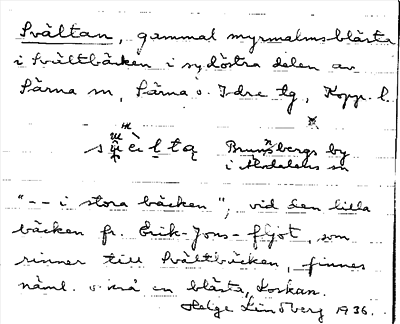 Svältan, gammal myrmalmsblästa
i Svältbäcken i sydöstra delen av
Särna sn, Särna o. Idre tg, Kopp. l.
Brunnsbergs by
i Älvdalens sn
"-- i stora bäcken"; vid den lilla
bäcken fr. Erik-Jons-fljot, som
rinner till Svältbäcken, finnes
näml. också en blästa, Loskan.
Helge Lindberg 1936.